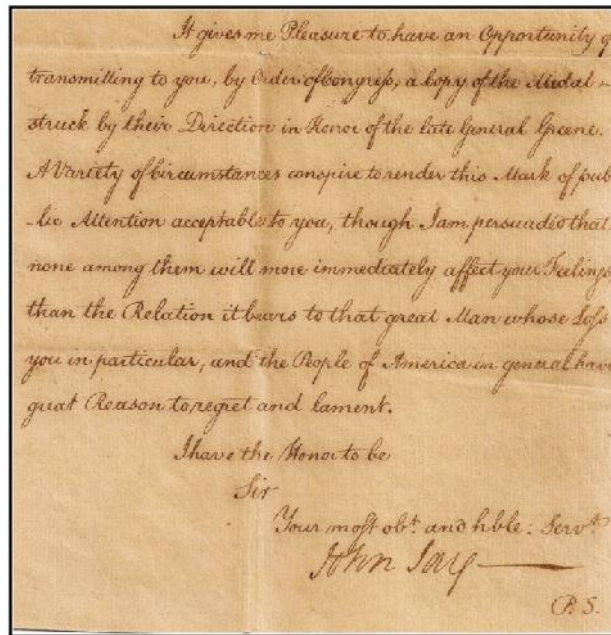 It gives me Pleasure to have an Opportunity of
transmitting to you, by Order of Congress, a Copy of the Medal
struck by their Direction in Honor of the late General Greene.
A Variety of Circumstances conspire to render this Mark of pub
-lic Attention acceptable to you, though I am persuaded that
none among them will more immediately affect your Feelings
than the Relation it bears to that great Man whose Loss
you in particular, and the People of America in general have
great Reason to regret and lament.
I have the Honor to be
Sir
Your most obt. and hble: Servt.
John Jay
P.S.